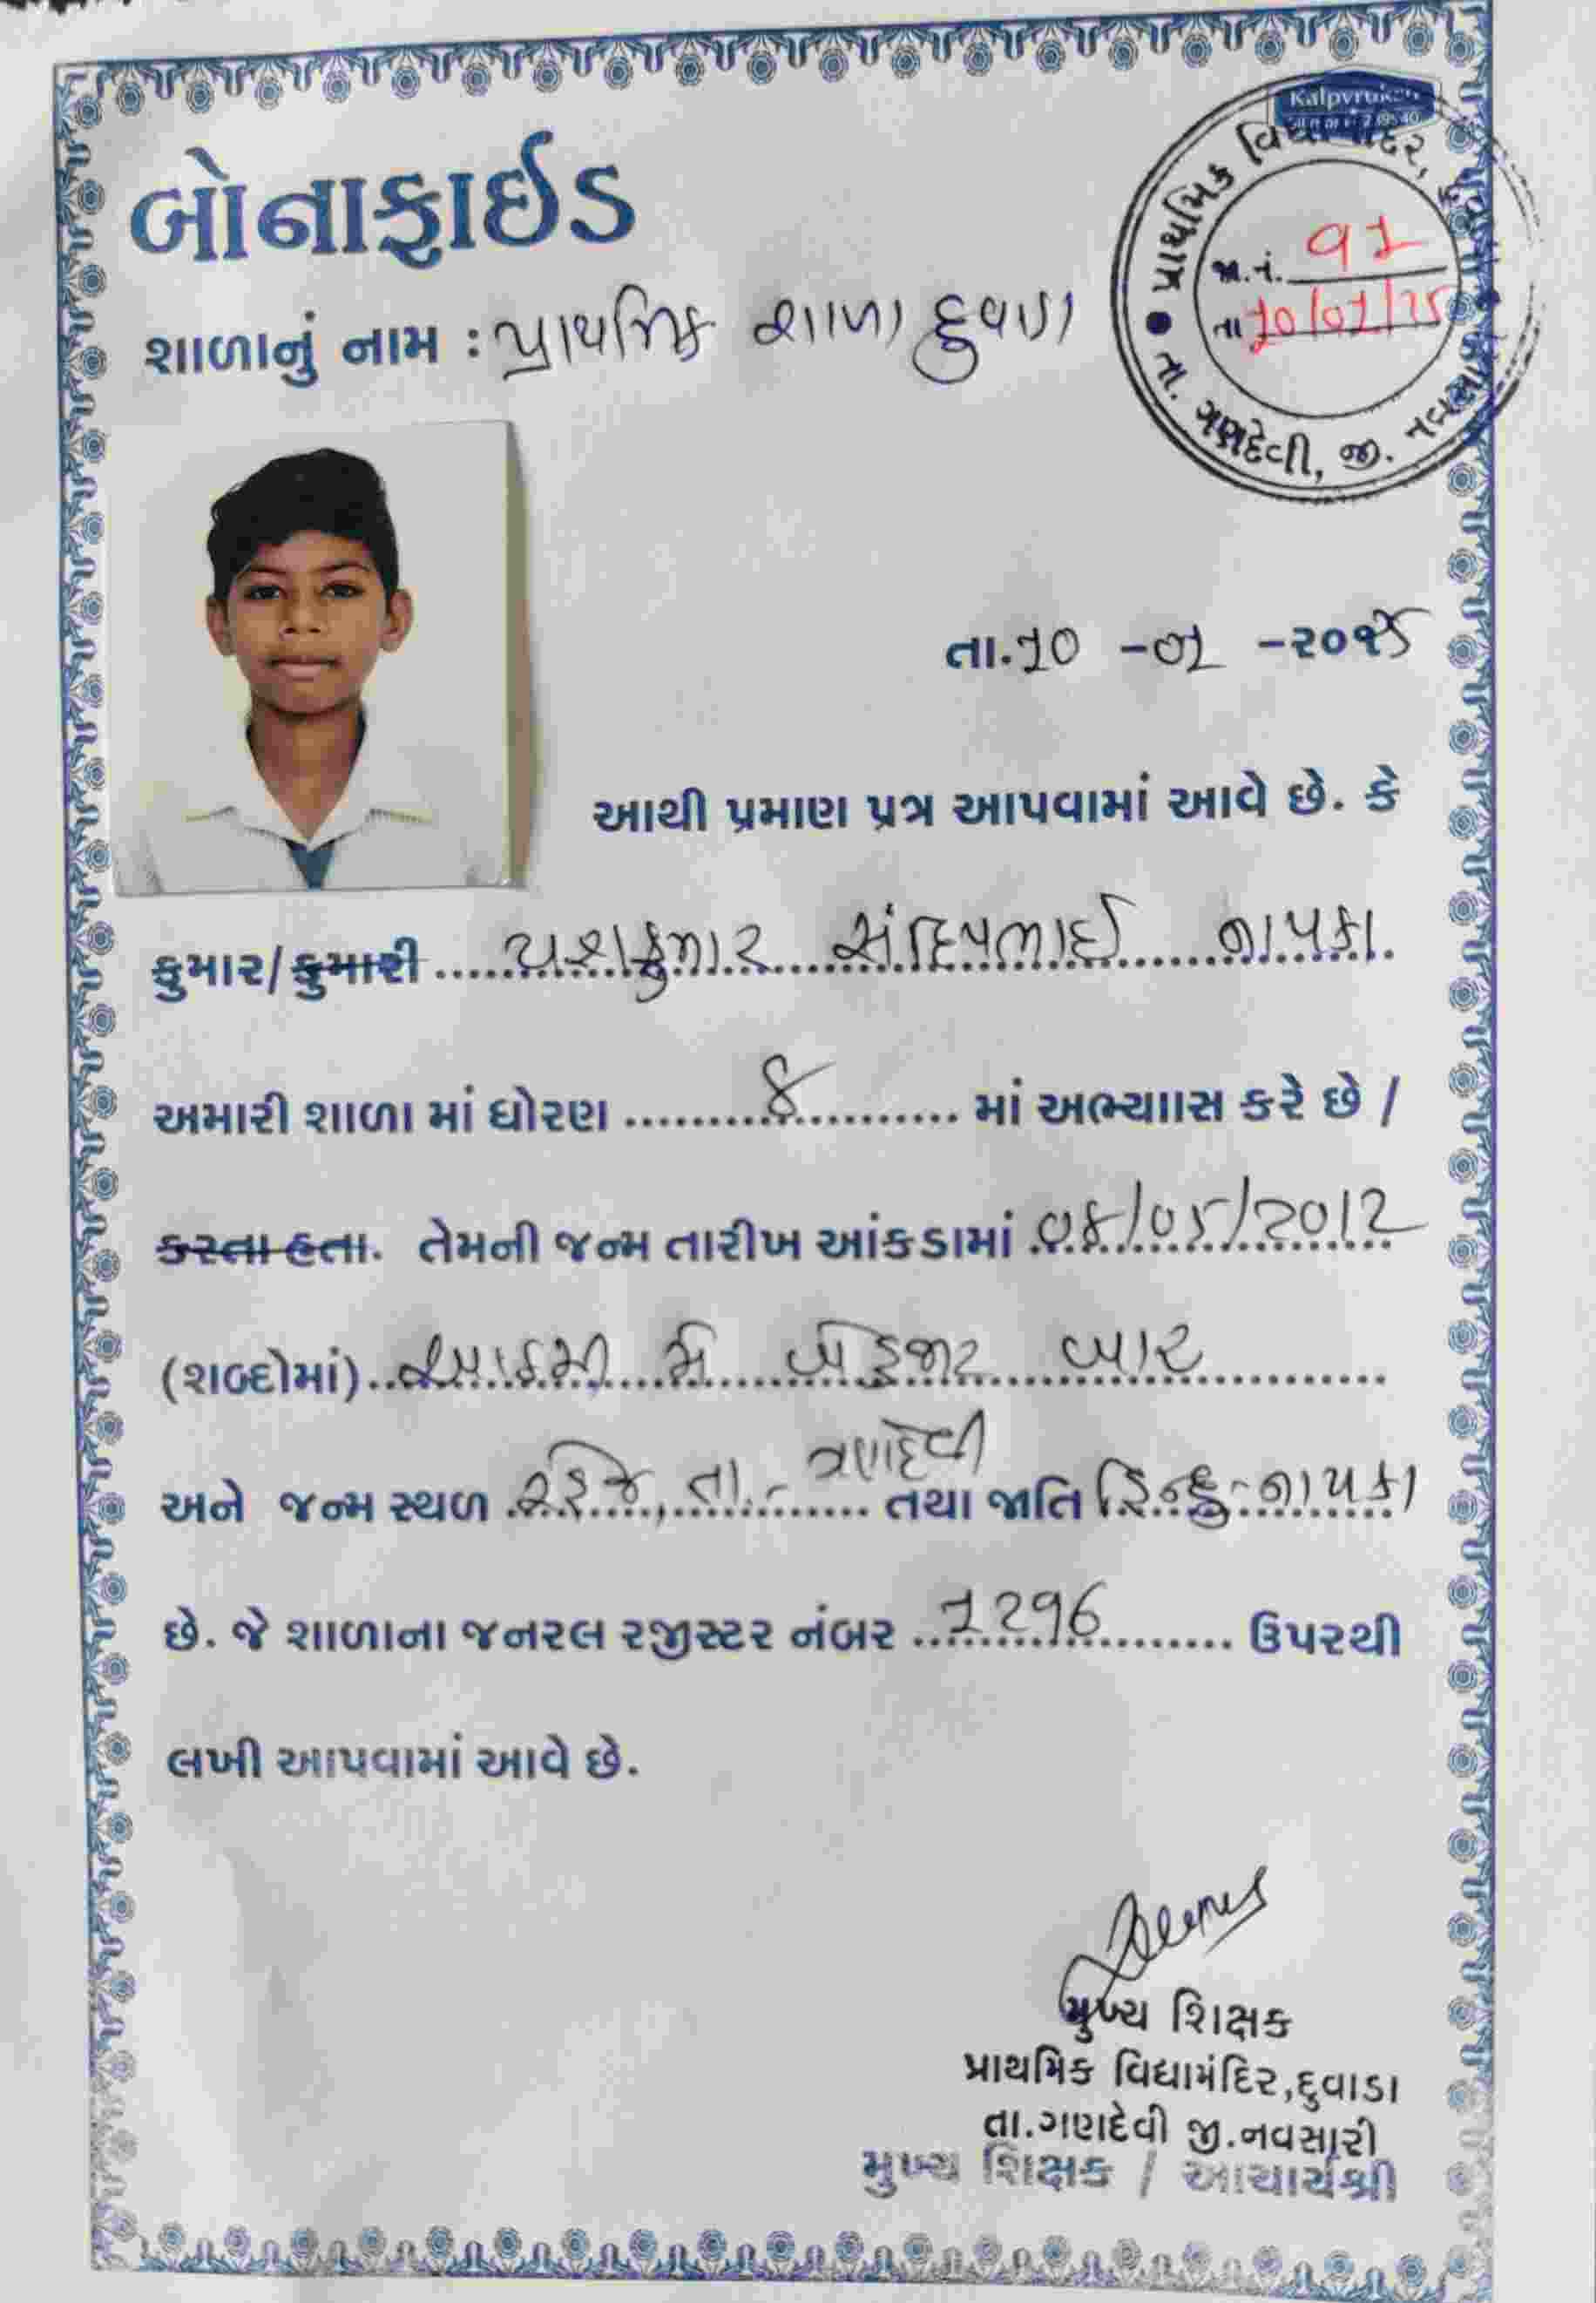 Kalpvruksh
બોનાફાઈડ
પ્રાથમિક વિદ્યામંદિર,
જા.નં. ૧1
તા 10/01/25
તા. ગણદેવી, જી. નવસારી
શાળાનું નામ : પ્રાથમિક શાળા દુવાડા
તા.10 -01 -૨૦૨5
આથી પ્રમાણ પત્ર આપવામાં આવે છે. કે
કુમાર/કુમારી યશકુમાર સંદિપભાઈ નાયકા.
અમારી શાળા માં ધોરણ 8 માં અભ્યાાસ કરે છે /
કરતા હતા. તેમની જન્મ તારીખ આંકડામાં 08/05/2012
(શબ્દોમાં) મે બાર
અને જન્મ સ્થળ તા.- ગણદેવી તથા જાતિ હિન્દુ-નાયકા
છે. જે શાળાના જનરલ રજીસ્ટર નંબર 1296 ઉપરથી
લખી આપવામાં આવે છે.
મુખ્ય શિક્ષક
પ્રાથમિક વિદ્યામંદિર,દુવાડા
તા.ગણદેવી જી.નવસારી
મુખ્ય શિક્ષક / આચાર્યશ્રી